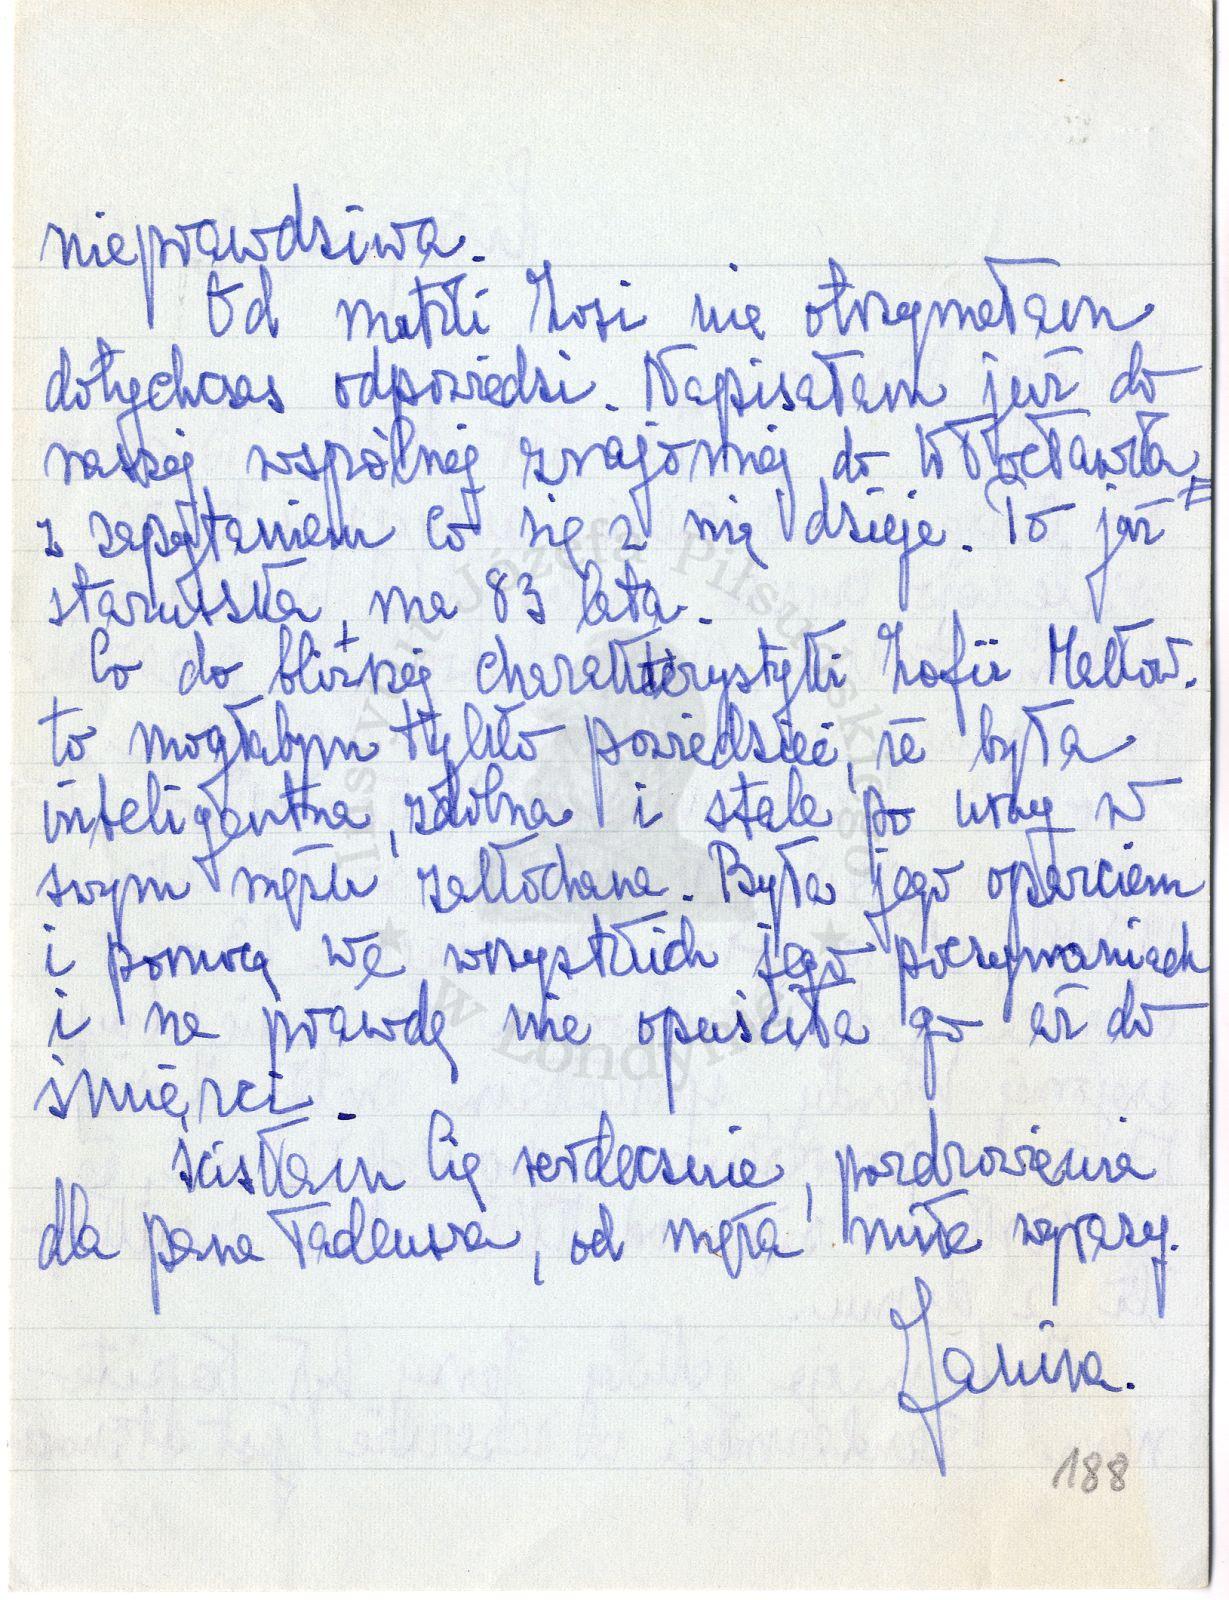 nieprawdziwa.
Od matki Zosi nie otrzymałam
dotychczas odpowiedzi. Napisałam już do
naszej wspólnej znajomej do Włocławka,
z zapytaniem co się z nią dzieje. To już
staruszka, ma 83 lata.
Co do bliższej charakterystyki Zofii
to mogłabym tylko powiedzieć, że była
inteligentna, zdolna i stale po uszy w
swym mężu zakochana. Była jego oparciem
i pomocą we wszystkich jego poczynaniach
i na prawdę nie opuściła go aż do
śmierci.
Ściskam Cię serdecznie, pozdrowienia
dla pana Tadeusza, od męża miłe wyrazy.
Janina.
188
Instytut Józefa Piłsudskiego
★ w Londynie ★